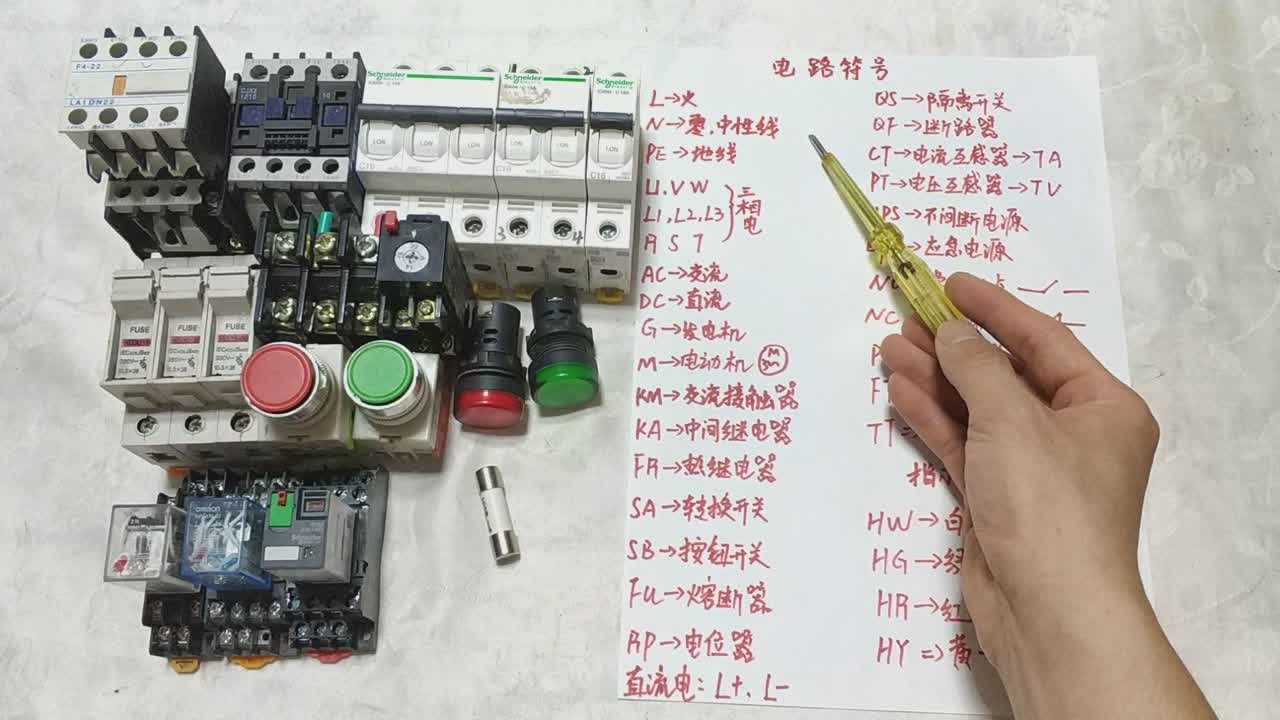 电路符号
L→火
N→零,中性线
PE→地线
U,V W
L1,L2,L3
R S T
三相电
AC→交流
DC→直流
G→发电机
M→电动机 M 3~
KM→交流接触器
KA→中间继电器
FR→热继电器
SA→转换开关
SB→按钮开关
FU→熔断器
RP→电位器
直流电:L+、L-
QS→隔离开关
QF→断路器
CT→电流互感器→TA
PT→电压互感器→TV
PS→不间断电源
应急电源
NC
TT
HW→白
HG→绿
HR→红
HY⇒黄
F4-22
LA1DN22
CJX2
1210
Schneider
Schneider
Schneider
C16
C16
C16
3
4
FUSE
FUSE
FUSE
omron
Schneider